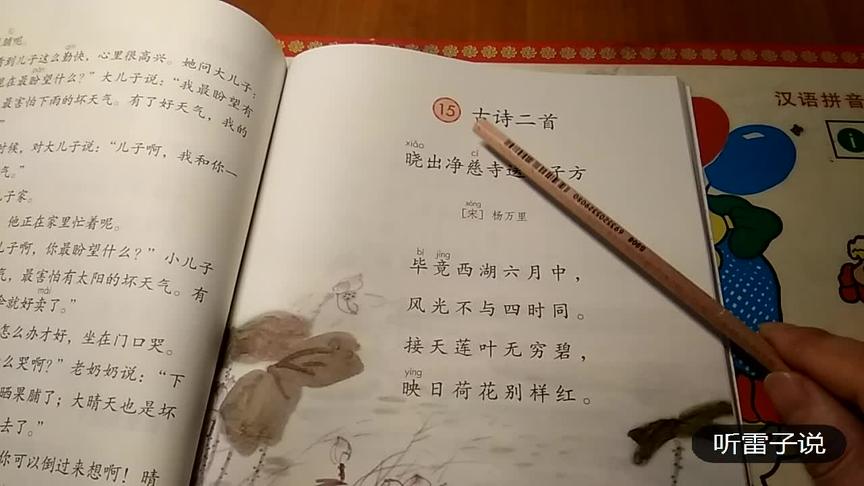 脯呢。
qín
看到儿子这么勤快，心里很高兴。她问大儿子：
pàn
在最盼望什么？”大儿子说：“我最盼望有
最害怕下雨的坏天气。有了好天气，我的
”
时候，对大儿子说：“儿子啊，我和你一
气。”
儿子家。
他正在家里忙着呢。
儿子啊，你最盼望什么？”小儿子
气，最害怕有太阳的坏天气。有
mài
伞就好卖了。”
怎么办才好，坐在门口哭。
么哭啊？”老奶奶说：“下
晒果脯了；大晴天也是坏
去了。”
你可以倒过来想啊！晴
15 古诗二首
xiǎo cí
晓出净慈寺送子方
sòng
[宋] 杨万里
bì jìng
毕竟西湖六月中，
风光不与四时同。
接天莲叶无穷碧，
yìng
映日荷花别样红。
汉语拼音
i
听雷子说